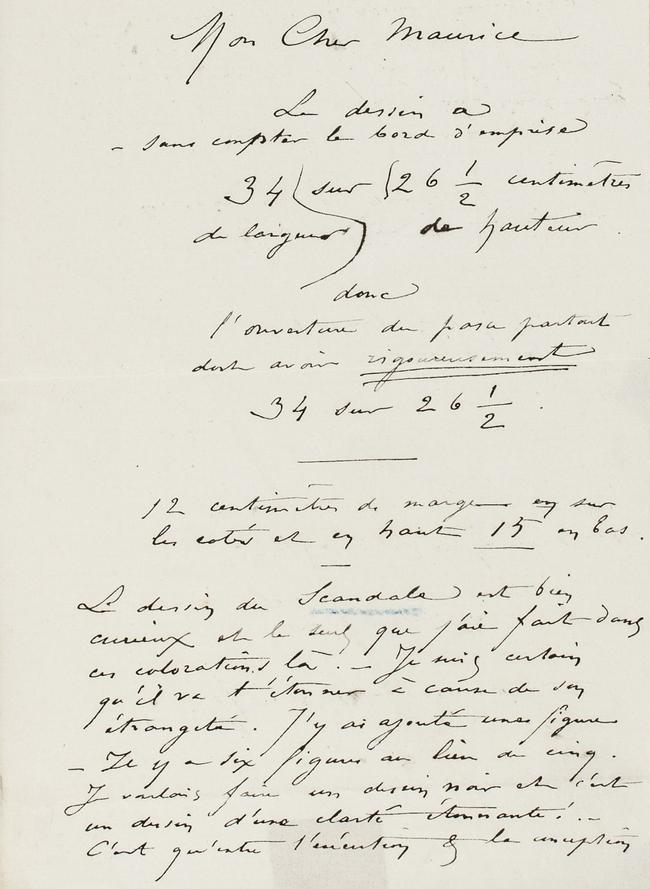 Mon Cher Maurice
Le dessin a
- sans compter le bord d'emprise
34 sur 26 1/2 centimètres
de largeur de hauteur.
donc
l'ouverture du passe partout
doit avoir rigoureusement
34 sur 26 1/2.
12 centimètres de marge en sur
les cotés et en haut 15 en bas.
Le dessin du Scandale est bien
curieux et le seul que j'aie fait dans
ces colorations là. - Je suis certain
qu'il va t'étonner à cause de son
étrangeté. J'y ai ajouté une figure
- Il y a six figures au lieu de cinq.
Je voulais faire un dessin noir et c'est
un dessin d'une clarté étonnante! -
C'est qu'entre l'exécution & la conception